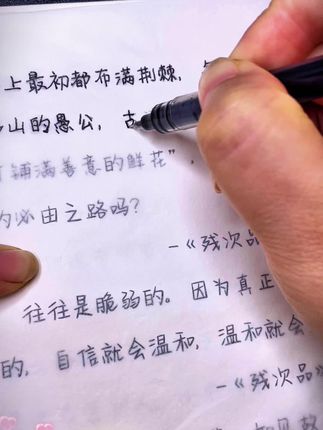 上最初都布满荆棘，
山的愚公，古
铺满善意的鲜花”，
的必由之路吗？
—《残次品
往往是脆弱的。因为真正
的，自信就会温和，温和就会
—《残次品》